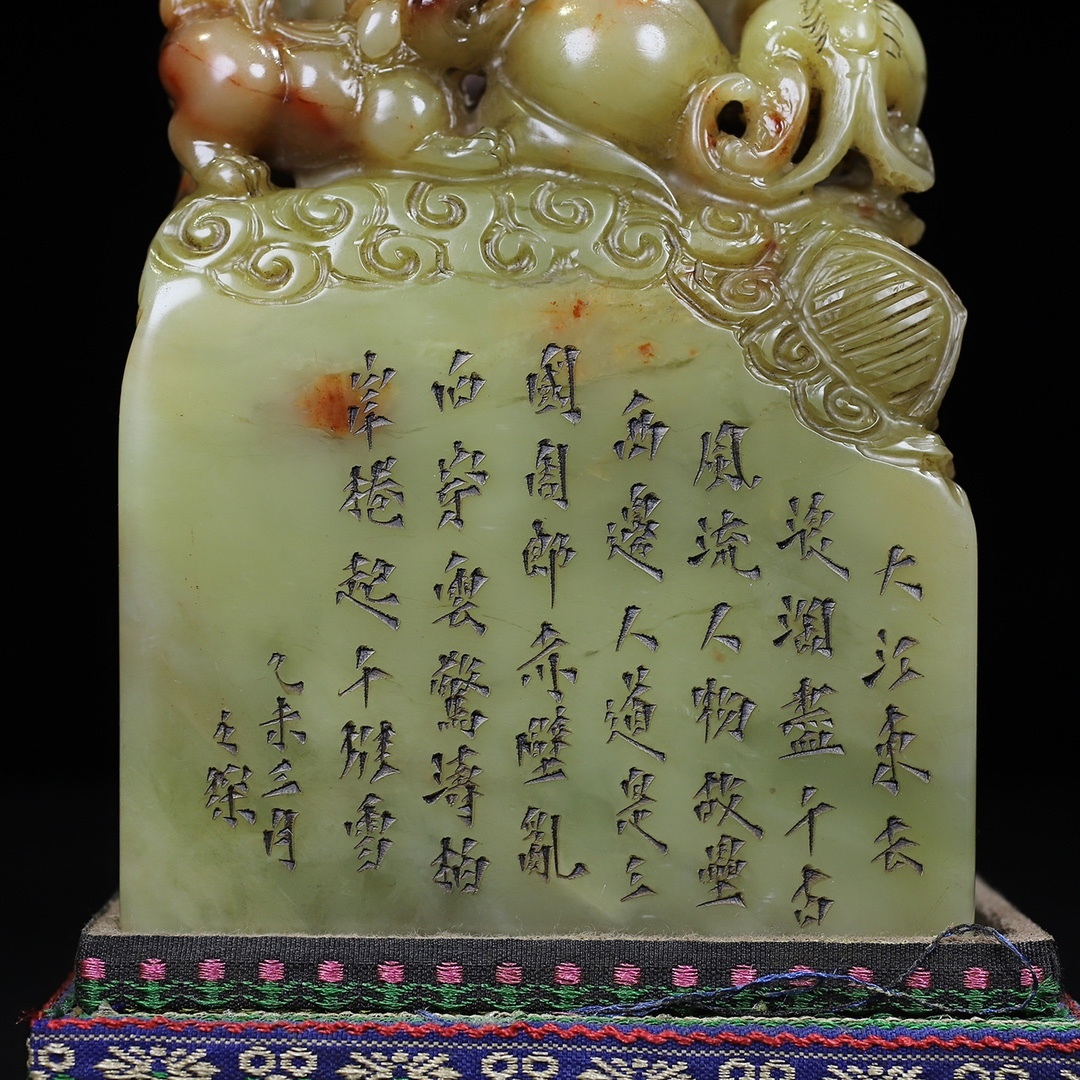 大江東去
浪淘盡千古
風流人物故壘
西邊人道是三
國周郎赤壁亂
石穿雲驚濤拍
岸捲起千堆雪
乙未三月
之